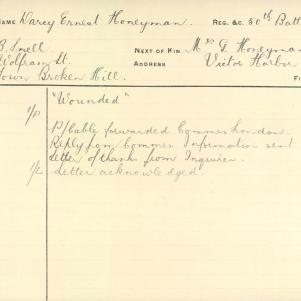 NAME Darcy Ernest Honeyman. REG. &C. 50th Batt
B. Snell. NEXT OF KIN Mrs G. Honeyman
Wolfram St. ADDRESS Victor Harbor
Town Broken Hill.
"Wounded"
P/Cable forwarded Commrs London.
Reply from Commrs Information sent
Letter of thanks from Inquirer.
Letter acknowledged.